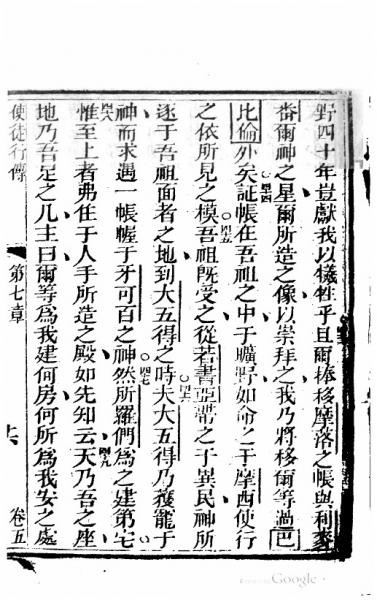 野四十年豈獻我以犧牲乎且爾捧移摩落之帳與利麥
番爾神之星爾所造之像以崇拜之我乃將移爾等過巴
比倫外矣四四証帳在吾祖之中于曠野如命之于摩西使行
之依所見之模四五吾祖既受之從若書亞帶之于異民神所
逐于吾祖面者之地到大五得之時四六夫大五得乃獲寵于
神而求遇一帳幄于牙可百之神四七然所羅們為之建第宅
四八惟至上者弗住于人手所造之殿如先知云四九天乃吾之座
地乃吾足之几主曰爾等為我建何房何所為我安之處
使徒行傳 第七章 卷五
Google